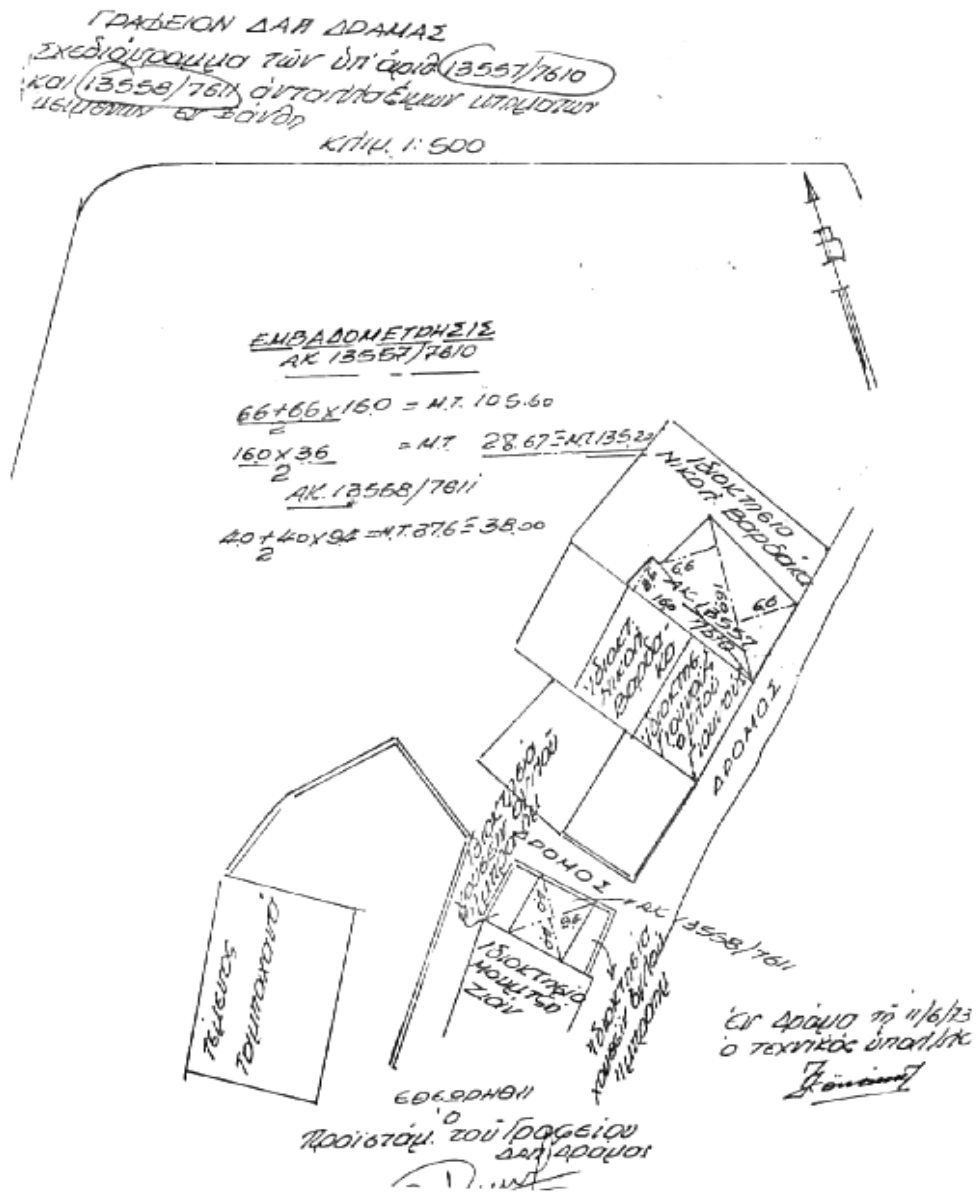 ΓΡΑΦΕΙΟΝ ΔΑΠ ΔΡΑΜΑΣ
Σχεδιάγραμμα τῶν ὑπ' ἀριθ 13557/7610
καί 13558/7611 ἀνταλλαξίμων κτημάτων
κειμένων ἐν Ξάνθῃ
κλιμ. 1:500
ΕΜΒΑΔΟΜΕΤΡΗΣΙΣ
ΑΚ 13557/7610
66+66 x 160 = Μ.Τ. 105.60
2
160 x 36 = Μ.Τ 28.67 = Μ.Τ. 135.20
2
ΑΚ. 13558/7611
40+40x94 = Μ.Τ. 37.6 = 38.00
2
Ἰδιοκτησία
Νικολ. Βαρδάκα
66
1691
60
36
160
ΑΚ 13557
7610
Ἰδιοκτ.
Νικολ.
Βαρδά-
κα
Ἰδιοκτησ.
ΔΡΟΜΟΣ
ΔΡΟΜΟΣ
ΑΚ 13558/7611
Ἰδιοκτησία
Ἰδιοκτησία
ΤΕΜΕΝΟΣ
ἐν Δράμα τῇ 11/6/73
ὁ τεχνικός ὑπάλ/λος
ΕΘΕΩΡΗΘΗ
ὁ
Προϊστάμ. τοῦ Γραφείου
ΔΑΠ Δράμας